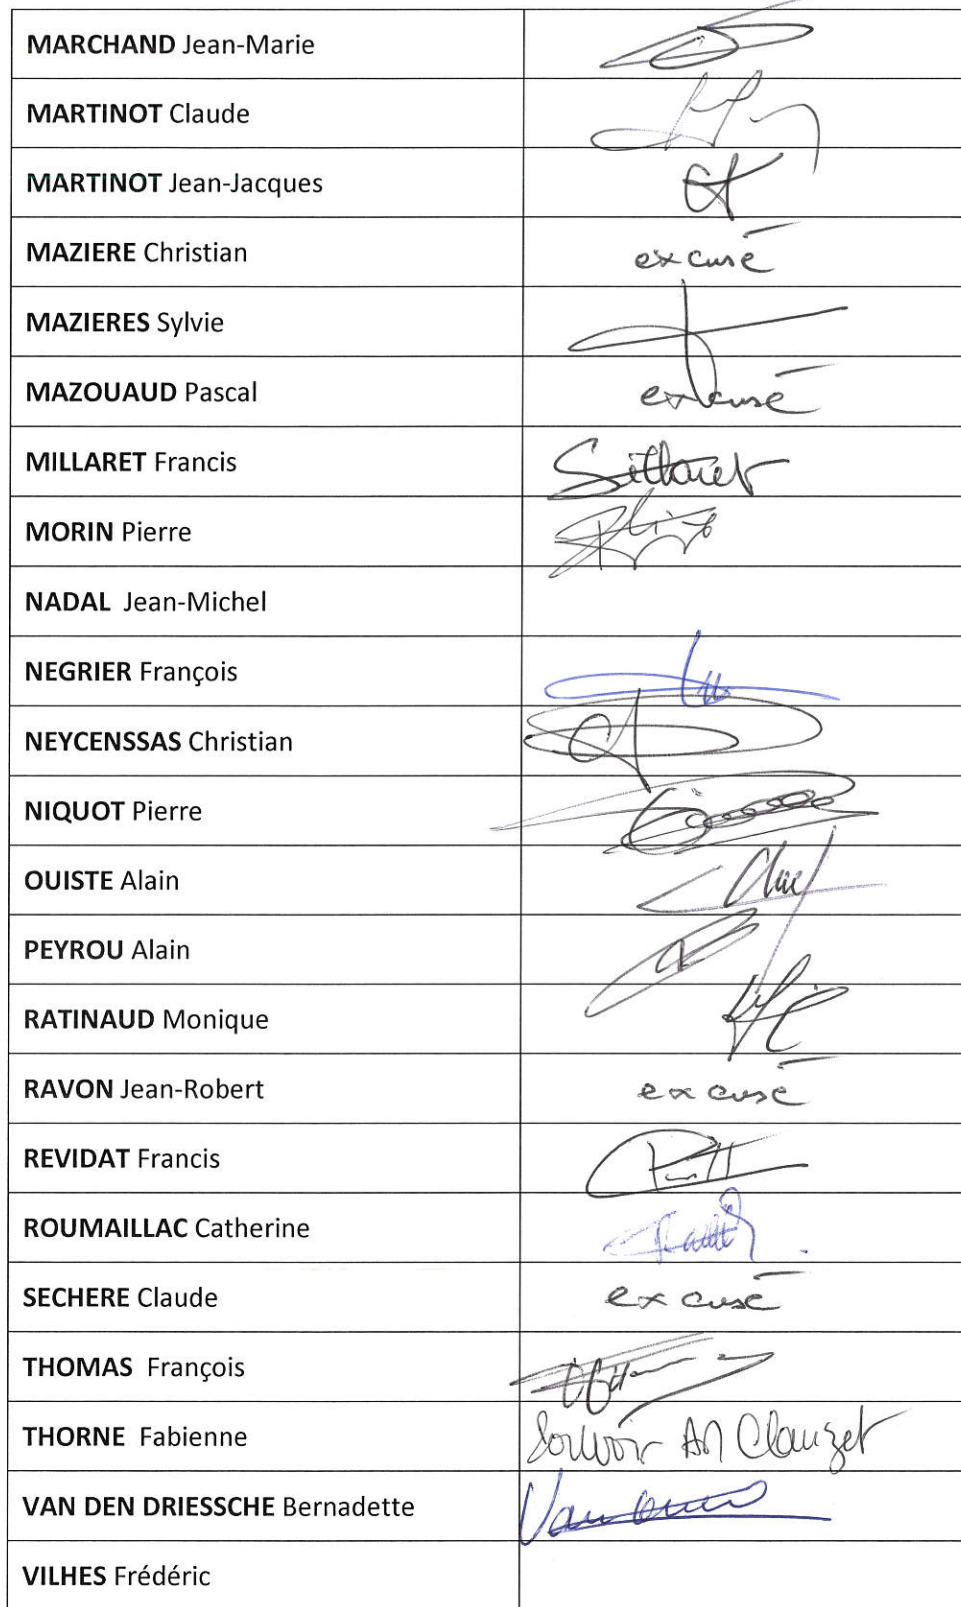 MARCHAND Jean-Marie
MARTINOT Claude
MARTINOT Jean-Jacques
MAZIERE Christian excusé
MAZIERES Sylvie
MAZOUAUD Pascal excusé
MILLARET Francis
MORIN Pierre
NADAL Jean-Michel
NEGRIER François
NEYCENSSAS Christian
NIQUOT Pierre
OUISTE Alain
PEYROU Alain
RATINAUD Monique
RAVON Jean-Robert excusé
REVIDAT Francis
ROUMAILLAC Catherine
SECHERE Claude excusé
THOMAS François
THORNE Fabienne Clauzet
VAN DEN DRIESSCHE Bernadette
VILHES Frédéric